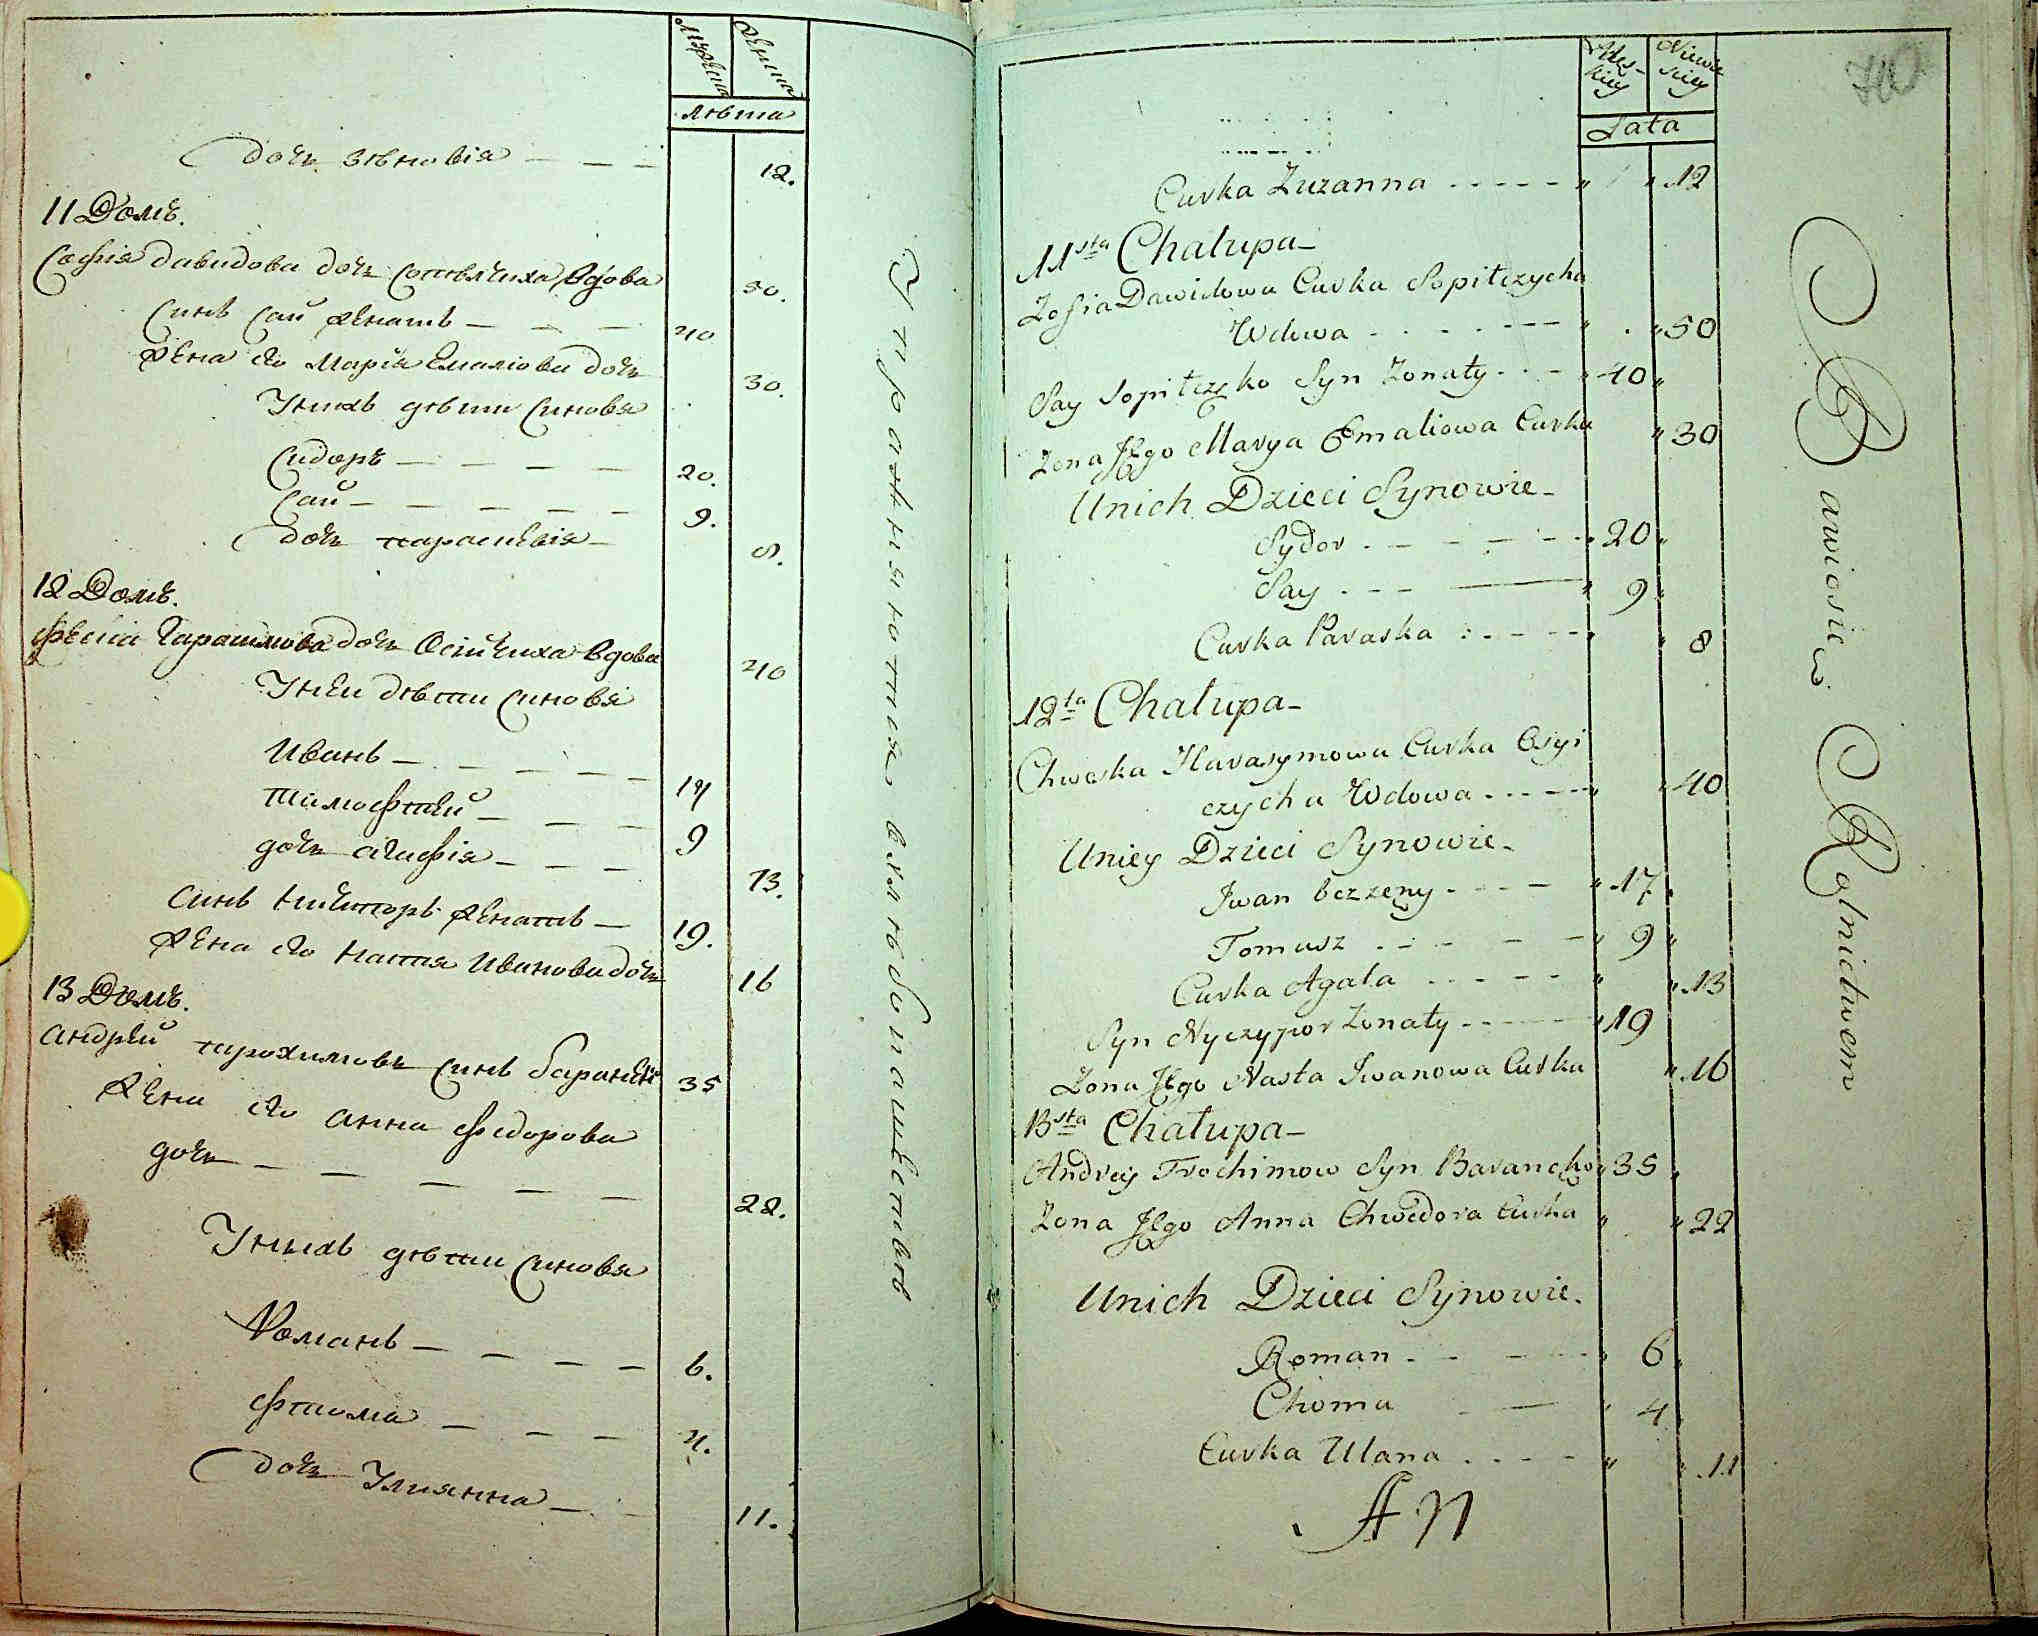 мужска женска
лѣта
дочь Зѣновія — — — 12.
11 Домъ.
Софія Давидова дочь Сопѣлчиха, Вдова 50.
Синъ Сай женатъ — — — 40
жена его Марія Емалiова дочь 30.
У нихъ дѣти синовя
Сидоръ — — — — 20.
Сай — — — — — 9.
дочь параскевія — 8.
12 Домъ.
Гарасимова дочь Осійчиха Вдова 40
У неи дѣти синовя
Иванъ — — — — — 17
Тимофтей — — — 9
дочь агафія — — — 13.
Синъ Ничипоръ женатъ — 19.
жена его Настя Иванова дочь 16
13 Домъ.
Андрей трохимовъ синъ баранчик 35
жена его анна федорова
дочь — — — — — 22.
У нихъ дѣти синовя
Романъ — — — — 6.
фтома — — — 4.
дочь Улиянна — — 11.
Упражняютца въ хлѣбопашествѣ
Męs-kiey Niewie-sciey
Lata
Curka Zuzanna - - - - - " " 12
11sta Chałupa
Zofia Dawidowa Curka Sopiłczycha
Wdowa - - - - - - - " . " 50
Say Sopiłczęko Syn Zonaty - - - " 40 "
Zona Jego Marya Emaliowa Curka " 30
Unich Dzieci Synowie
Sydor - - - - - - - " 20 "
Say - - - — " 9 "
Curka Paraska : - - - - " " 8
12ta Chałupa
Chweska Harasymowa Curka Osyi
czycha Wdowa - - - - - " " 40
Uniey Dzieci Synowie
Jwan bez zeny - - - - " 17 "
Tomasz - - - - - " 9 "
Curka Agata - - - - - " " 13
Syn Nyczypor Zonaty - - - - - " 19
Zona Jego Nasta Jwanowa Curka " 16
13sta Chałupa
Andrey Trochimow Syn Baranęko " 35 "
Zona Jego Anna Chwedora Curka " " 22
Unich Dzieci Synowie
Roman - - - - - " 6 "
Choma - — " 4 "
Curka Ulana - - - - " " 11
AN
Bawiosię Rolnictwem